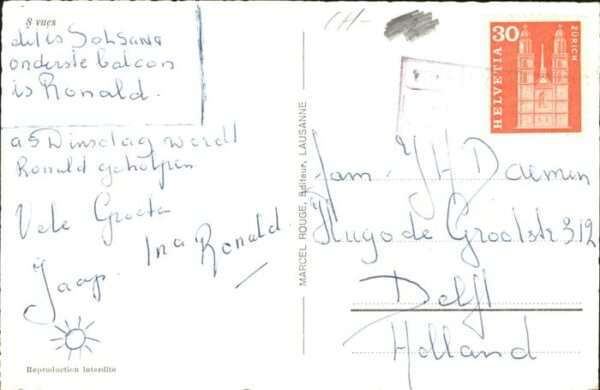 8 vues
dit is Solsana
onderste balcon
is Ronald.
as Dinsdag wordt
Ronald geholpen
Vele Groeten
Jaap. Ina Ronald
Reproduction interdite
MARCEL ROUGE, Editeur, LAUSANNE
CH-
30
HELVETIA
ZÜRICH
Fam. Daemen
Hugo de Grootstr 312
Delft
Holland